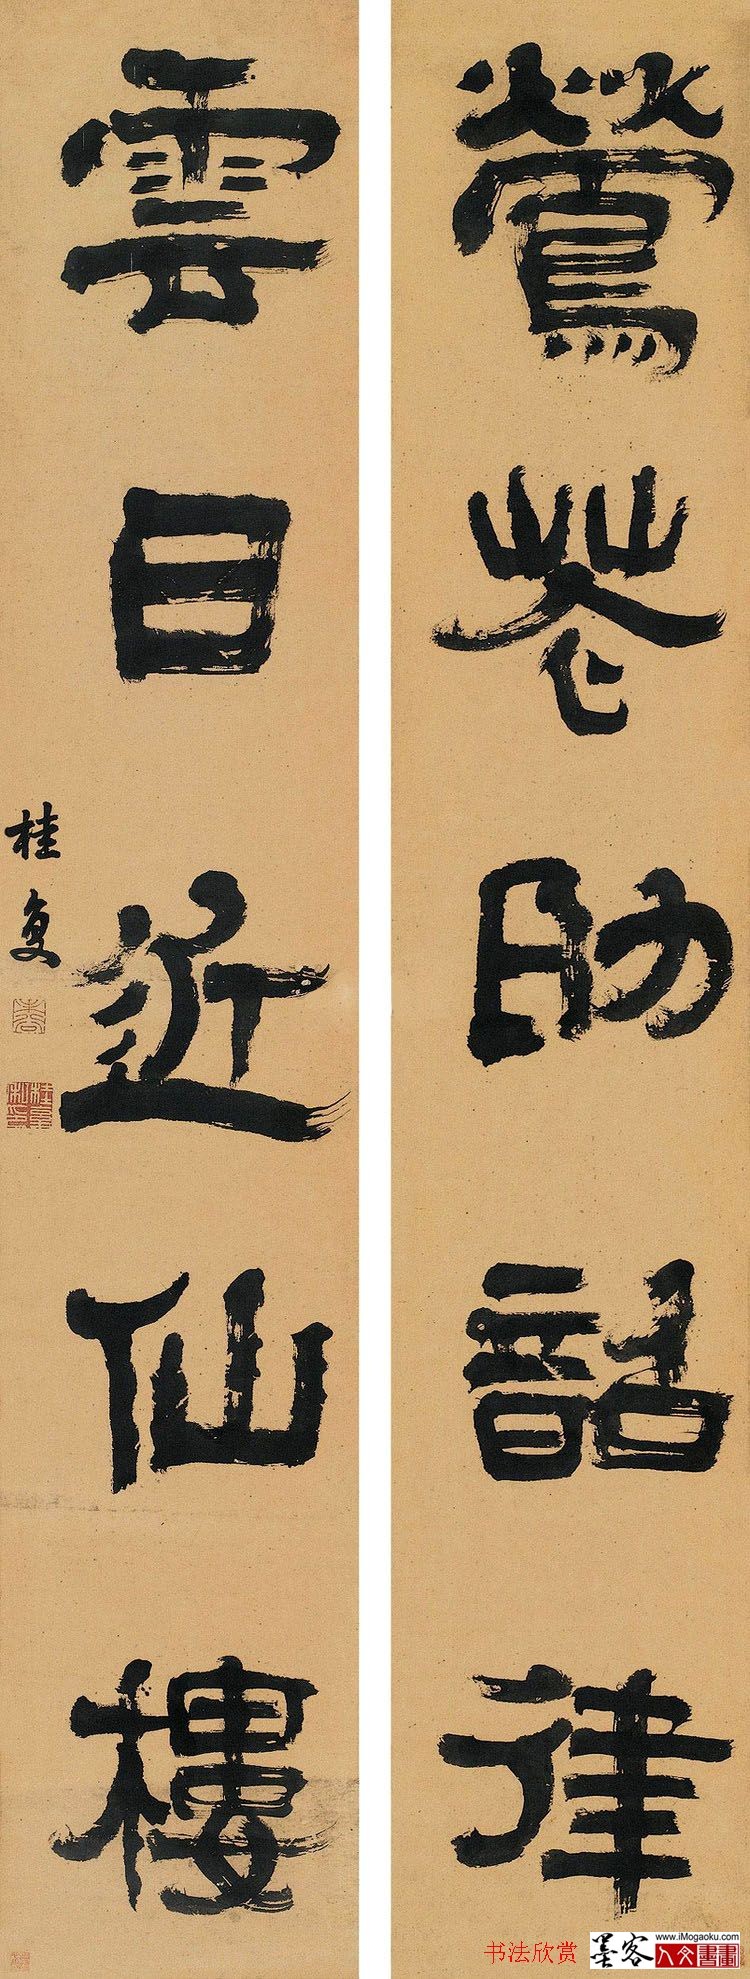 鶯花助詔律
雲日近仙樓
桂复
书法欣赏
墨客
www.iMogaoku.com
人文書畫